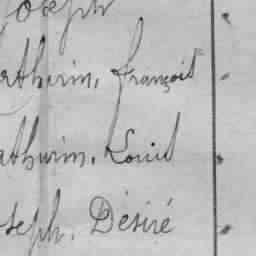 Joseph
athurin, François
athurin, Louis
oseph, Désiré